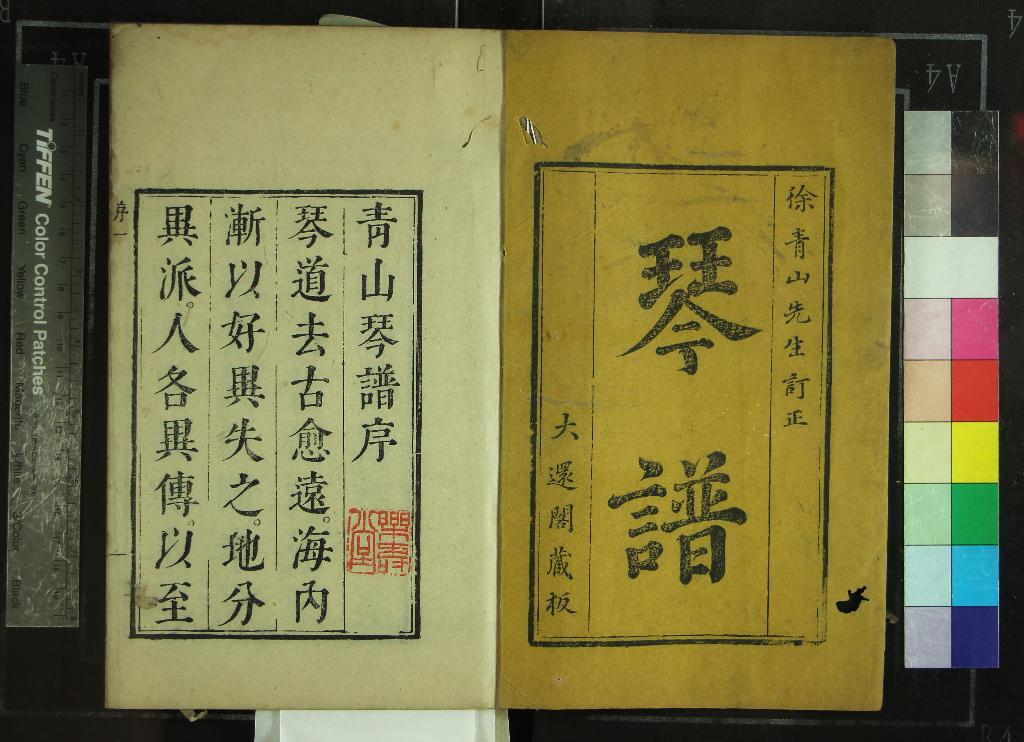 徐青山先生訂正
琴譜
大還閣蔵板
青山琴譜序
琴道去古愈遠。海內
漸以好異失之。地分
異派。人各異傳。以至
序
一
TIFFEN Color Control Patches
Blue
Cyan
Green
Yellow
Red
Magenta
White
3/Color
Black
Centimetres
A4
A4
B4